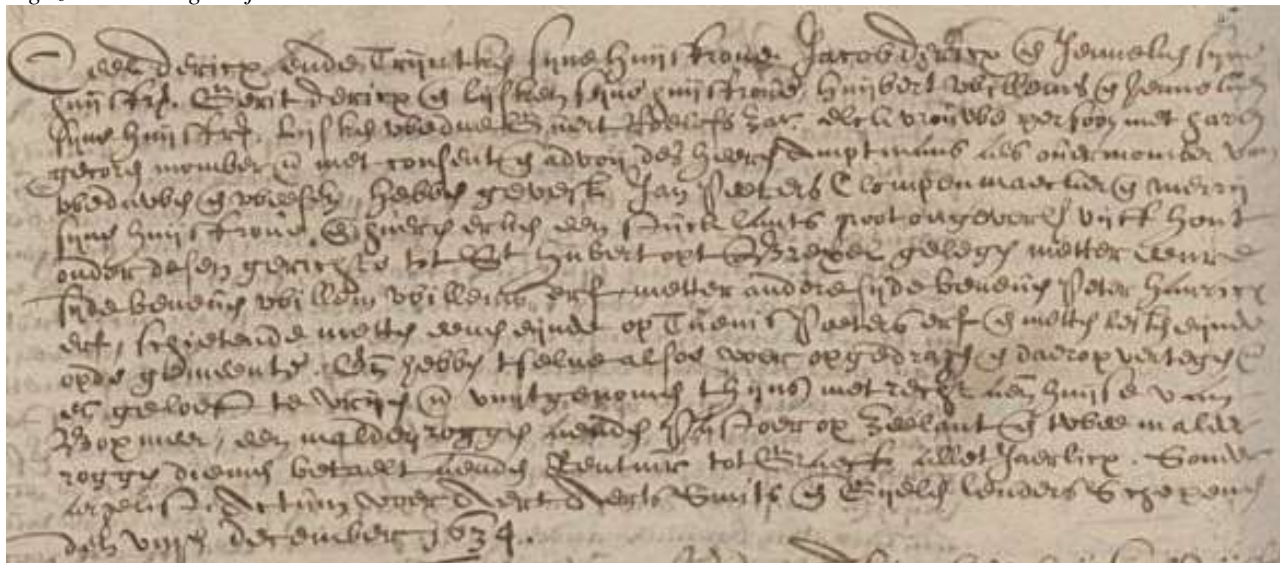 Ceel Dericx ende Trijntken sijne huijsfrouw. Jacob Dericx en Jenneken sijne
huijsfr. Gerit Dericx en Lijsken sijne huijsfrouw, Huijbert Willems en Jenneken
sijne huijsfr. Lijsken weduwe Geert Roelofs zar. elck vrouwe persoon met haren
gecoren momber en met consent en advoij des heeren Amptmans als overmomber van
weduwen en weesen, hebben geverk. Jan Peters Clompenmaecker en Merrij
sijne huijsfrouw, en hueren erven een stuck lants groot ongeverl. vijff hont
onder desen gerichte tot St Hubert opt gelegen metter eenre
sijde beneven Willem Willems erf, metter andere sijde beneven Peter Henricx
erf, schietende metten eenen eijnde op Tuenis Peeters erf en metten eijnde
opde gemeente. En hebben tselve alsoe voer opgedragen en daerop vertegen en
geloeft te vrijen en vuijtgenomen thijns met recht aen huijse van
Boxmeer, een malder roggen aenden Pastoer op Zeelant en twee malder
roggen dienen betaelt aenden Rentmr tot Graeff allet Jaerlicx. Sonder
argelist. Actum voer Aert Aerts Smits en Lenders Schepenen
den viij december 1634.